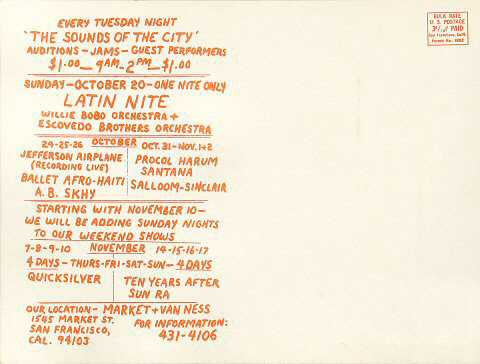 EVERY TUESDAY NIGHT
'THE SOUNDS OF THE CITY'
AUDITIONS - JAMS - GUEST PERFORMERS
$1.00 - 9AM - 2PM - $1.00
SUNDAY - OCTOBER 20 - ONE NITE ONLY
LATIN NITE
WILLIE BOBO ORCHESTRA +
ESCOVEDO BROTHERS ORCHESTRA
24-25-26 OCTOBER OCT. 31 - NOV. 1+2
JEFFERSON AIRPLANE
(RECORDING LIVE)
BALLET AFRO-HAITI
A.B. SKHY
PROCOL HARUM
SANTANA
SALLOOM-SINCLAIR
STARTING WITH NOVEMBER 10 -
WE WILL BE ADDING SUNDAY NIGHTS
TO OUR WEEKEND SHOWS
7-8-9-10 NOVEMBER 14-15-16-17
4 DAYS - THURS-FRI-SAT-SUN - 4 DAYS
QUICKSILVER
TEN YEARS AFTER
SUN RA
OUR LOCATION - MARKET + VAN NESS
1545 MARKET ST.
SAN FRANCISCO,
CAL. 94103
FOR INFORMATION:
431-4106
BULK RATE
U. S. POSTAGE
PAID
San Francisco, Calif.
Permit No.